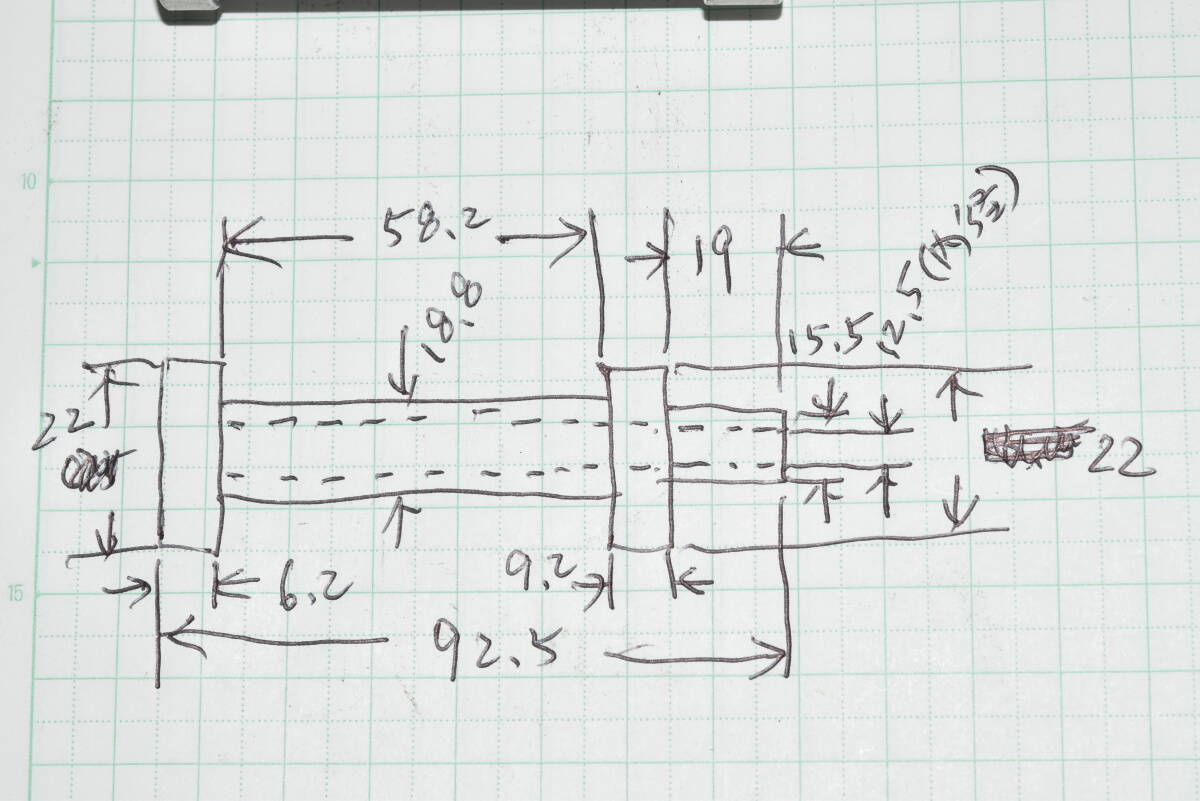 10
15
58.2
19
18.8
15.5
22
22
6.2
9.2
92.5